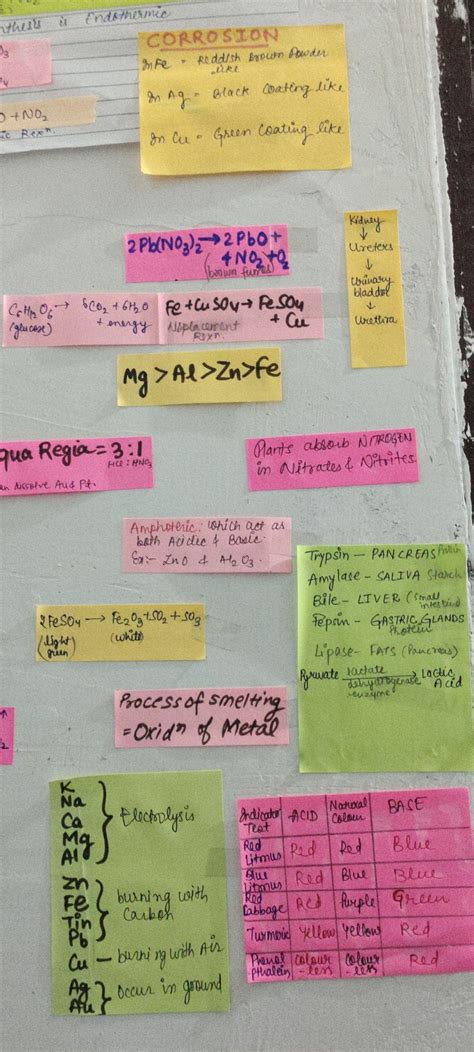 nthesis is Endothermic
CORROSION
In Fe = Reddish brown Powder
like
In Ag = Black Coating like
In Cu = Green Coating like
O + NO2
ic Rexn.
2Pb(NO3)2 → 2PbO +
4NO2 + O2
(brown fumes)
Kidney
↓
Ureters
↓
Urinary
bladder
↓
Urethra
C6H12O6 → 6CO2 + 6H2O
(glucose) + energy
Fe + CuSO4 → FeSO4
+ Cu
Displacement
Rxn.
Mg > Al > Zn > Fe
qua Regia = 3:1
HCl : HNO3
an dissolve Au & Pt.
Plants absorb NITROGEN
in Nitrates & Nitrites.
Amphoteric: which act as
both Acidic & Basic.
Ex:- ZnO & Al2O3.
Trypsin — PANCREAS
Amylase — SALIVA Starch
Bile — LIVER (Small
intestine)
Pepsin — GASTRIC GLANDS
Protein
Lipase — FATS (Pancreas)
Pyruvate lactate → Lactic
dehydrogenase Acid
enzyme
2FeSO4 → Fe2O3 + SO2 + SO3
(light (white)
green)
Process of smelting
= Oxidn of Metal
K
Na
Ca
Mg
Al
Electrolysis
Zn
Fe
Tin
Pb
burning with
Carbon
Cu — burning with Air
Ag
Au
Occur in ground
Indicator Test | ACID | Natural Colour | BASE
Red Litmus | Red | Red | Blue
Blue Litmus | Red | Blue | Blue
Red Cabbage | Red | Purple | Green
Turmeric | Yellow | Yellow | Red
Phenol-phthalein | Colour-less | Colour-less | Red